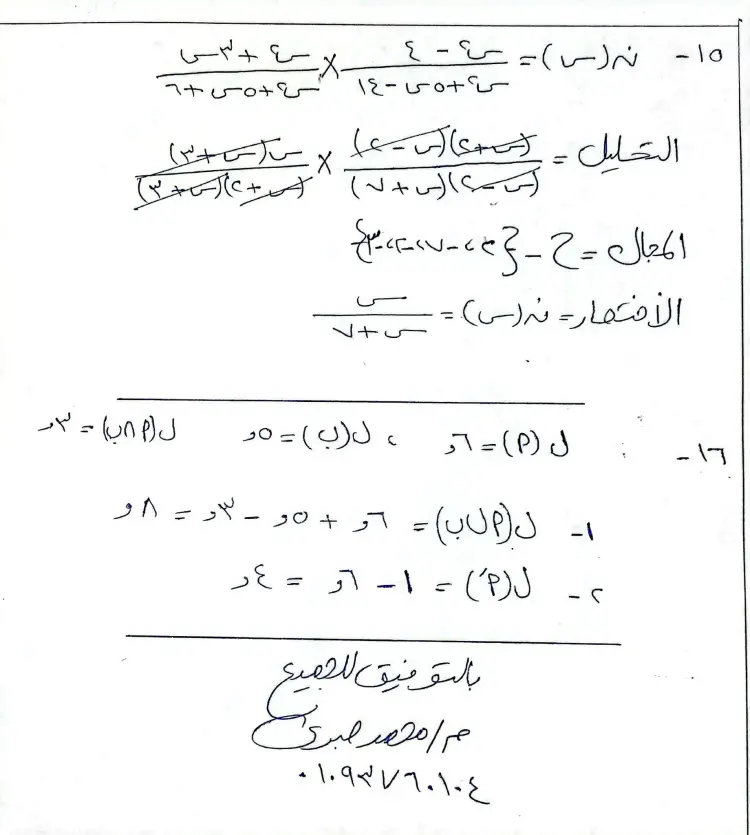 ١٥- ن(س) = (س٢ - ٤)/(س٢ + ٥س - ١٤) × (س٢ + ٣س)/(س٢ + ٥س + ٦)
التحليل = (س+٢)(س-٢)/(س-٢)(س+٧) × س(س+٣)/(س+٢)(س+٣)
المجال = ح - {٢، -٧، -٢، -٣}
الأختصار = ن(س) = س/(س+٧)
١٦- ل(P) = ٦و ، ل(ب) = ٥و ل(P∩ب) = ٣و
١- ل(P∪ب) = ٦و + ٥و - ٣و = ٨و
٢- ل(P′) = ١ - ٦و = ٤و
بالتوفيق للجميع
م/محمد صبرى
٠١٠٩٣٧٦٠١٠٤